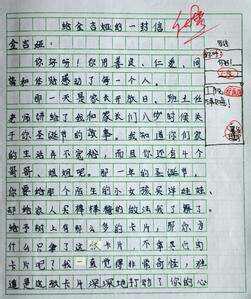 给金吉娅的一封信
金吉娅：
你好呀！你用善良、仁爱、同
情和体贴感动了每一个人。
那一天是家长开放日，班主任
老师讲给了我和家长们八岁时候关
于你圣诞节的故事。我知道你们家
的生活并不宽裕，而且你还有4个
哥哥、姐姐呢。那一年的圣诞节，
你要给那个陌生的小女孩买洋娃娃，
却给家人买棒棒糖的做法我了展了。
给予树上有那么多的卡片，那你为
什么只拿了这张卡片，不拿其他的
卡片呢？我一直觉得非常奇怪，难
道是这张卡片深深地打动了你的心